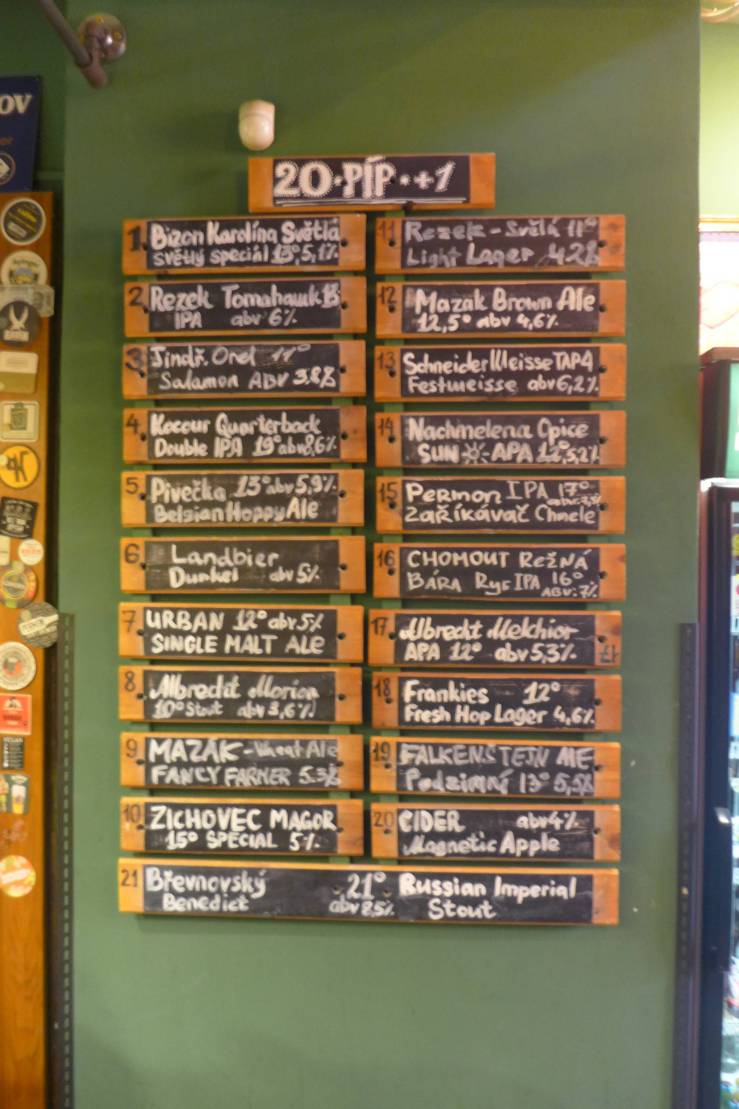 OV
20·PÍP·+1
1 Bizon Karolína Světlá
světlý speciál 13°, 5,1%
2 Rezek Tomahawk 15
IPA abv 6%
3 Jindř. Orel 11°
Salamon ABV 3.8%
4 Kocour Quarterback
Double IPA 19° abv 8,6%
5 Pivečka 13° abv 5,9%
Belgian Hoppy Ale
6 Landbier
Dunkel abv 5%
7 URBAN 12° abv 5%
SINGLE MALT ALE
8 Albrecht Morion
10° Stout abv 3,6%
9 MAZÁK - Wheat Ale
FANCY FARMER 5.3%
10 ZICHOVEC MAGOR
15° SPECIAL 5%
11 Rezek - Světlá 11°
Light Lager 4.2%
12 Mazák Brown Ale
12,5° abv 4,6%
13 Schneider Weisse TAP4
Festweisse abv 6,2%
14 Nachmelená Opice
SUN APA 12° 5,2%
15 Permon IPA 17°
Zaříkávač Chmele
16 CHOMOUT Režná
BÁRA Rye IPA 16°
ABV: 7%
17 Albrecht Melchior
APA 12° abv 5,3%
18 Frankies 12°
Fresh Hop Lager 4,6%
19 FALKENŠTEJN ALE
Podzimní 13° 5,5%
20 CIDER abv 4%
Magnetic Apple
21 Břevnovský 21° Russian Imperial
Benedict abv 8,5% Stout